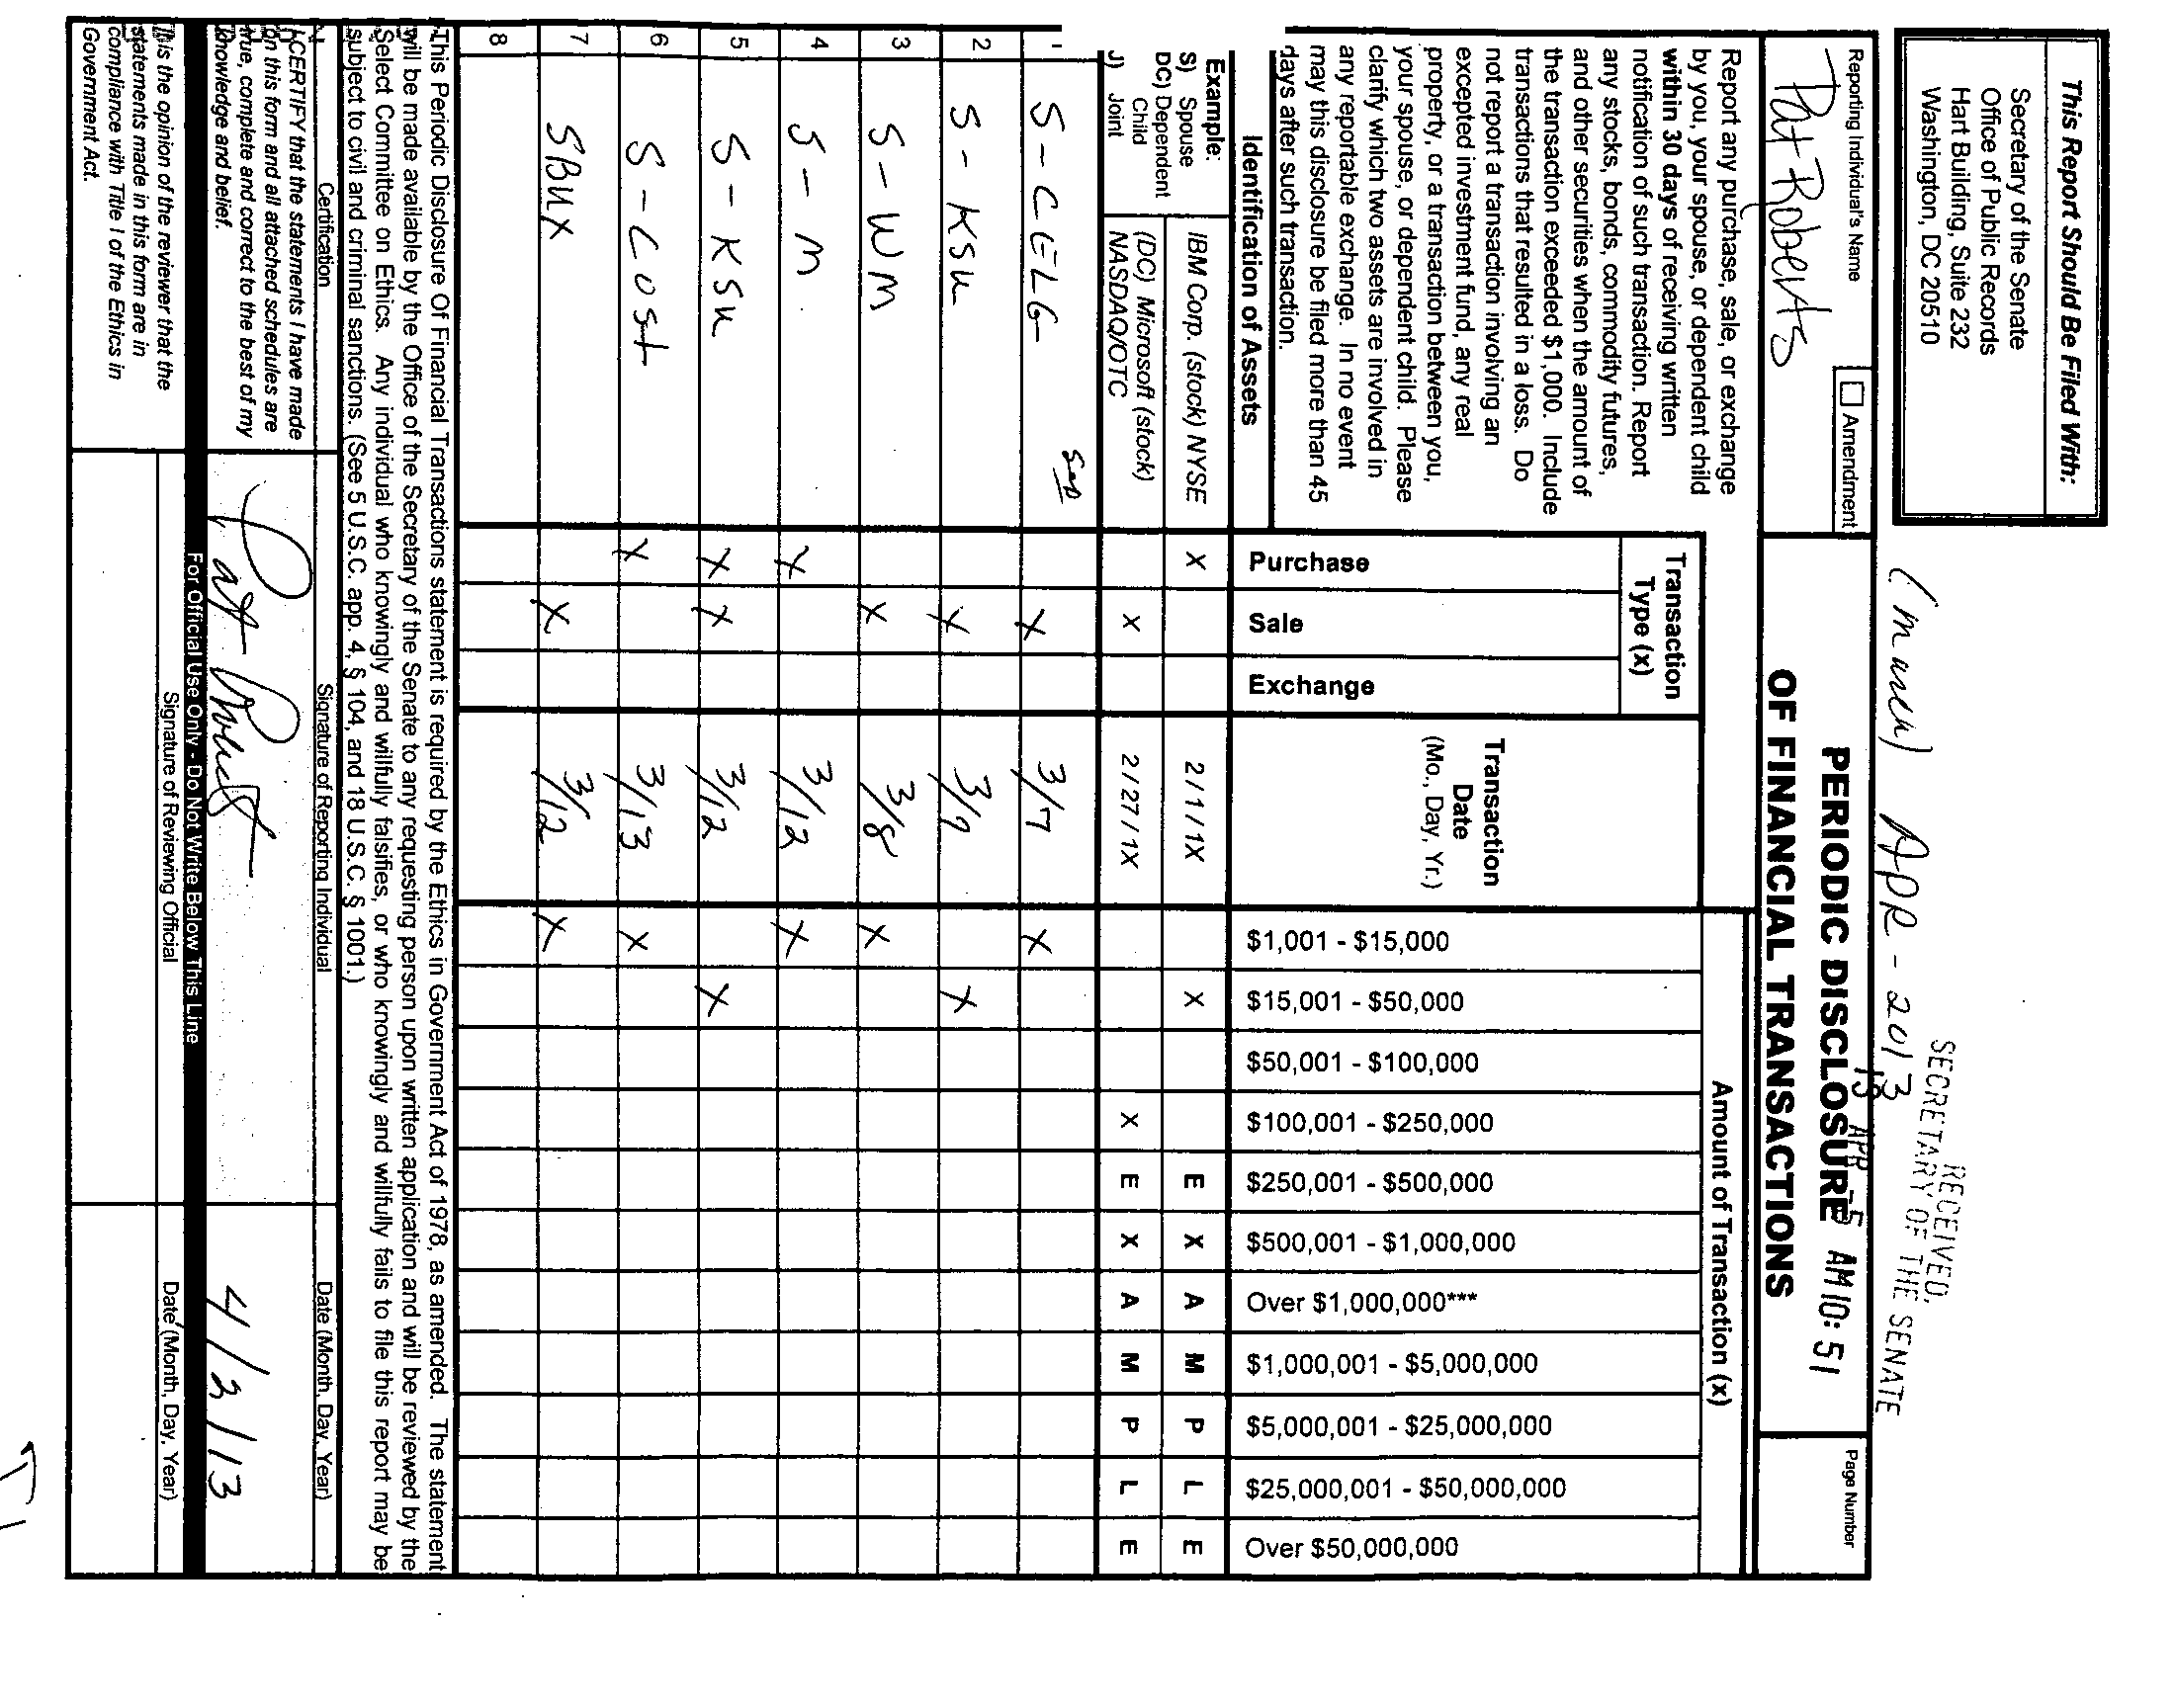 (March) Apr - 2013
RECEIVED
SECRETARY OF THE SENATE
13 APR -5 AM 10:51
This Report Should Be Filed With:
Secretary of the Senate
Office of Public Records
Hart Building, Suite 232
Washington, DC 20510
PERIODIC DISCLOSURE
OF FINANCIAL TRANSACTIONS
Reporting Individual's Name
Amendment
Page Number
Pat Roberts
Report any purchase, sale, or exchange
by you, your spouse, or dependent child
within 30 days of receiving written
notification of such transaction. Report
any stocks, bonds, commodity futures,
and other securities when the amount of
the transaction exceeded $1,000. Include
transactions that resulted in a loss. Do
not report a transaction involving an
excepted investment fund, any real
property, or a transaction between you,
your spouse, or dependent child. Please
clarify which two assets are involved in
any reportable exchange. In no event
may this disclosure be filed more than 45
days after such transaction.
Identification of Assets
Transaction
Type (x)
Purchase
Sale
Exchange
Transaction
Date
(Mo., Day, Yr.)
Amount of Transaction (x)
$1,001 - $15,000
$15,001 - $50,000
$50,001 - $100,000
$100,001 - $250,000
$250,001 - $500,000
$500,001 - $1,000,000
Over $1,000,000***
$1,000,001 - $5,000,000
$5,000,001 - $25,000,000
$25,000,001 - $50,000,000
Over $50,000,000
Example:
S) Spouse
DC) Dependent
Child
J) Joint
IBM Corp. (stock) NYSE X 2/1/1X X E X A M P L E
(DC) Microsoft (stock)
NASDAQ/OTC X 2/27/1X X E X A M P L E
1 S - CELG X 3/7 X
2 S - KSU X 3/9 X
3 S - WM X 3/8 X
4 S - M X 3/12 X
5 S - KSU X X 3/12 X
6 S - COST X 3/13 X
7 SBUX X 3/12 X
8
This Periodic Disclosure Of Financial Transactions statement is required by the Ethics in Government Act of 1978, as amended. The statement
will be made available by the Office of the Secretary of the Senate to any requesting person upon written application and will be reviewed by the
Select Committee on Ethics. Any individual who knowingly and willfully falsifies, or who knowingly and willfully fails to file this report may be
subject to civil and criminal sanctions. (See 5 U.S.C. app. 4, § 104, and 18 U.S.C. § 1001.)
Certification
Signature of Reporting Individual
Date (Month, Day, Year)
I CERTIFY that the statements I have made
on this form and all attached schedules are
true, complete and correct to the best of my
knowledge and belief.
Pat Roberts
4/2/13
For Official Use Only - Do Not Write Below This Line
It is the opinion of the reviewer that the
statements made in this form are in
compliance with Title I of the Ethics in
Government Act.
Signature of Reviewing Official
Date (Month, Day, Year)